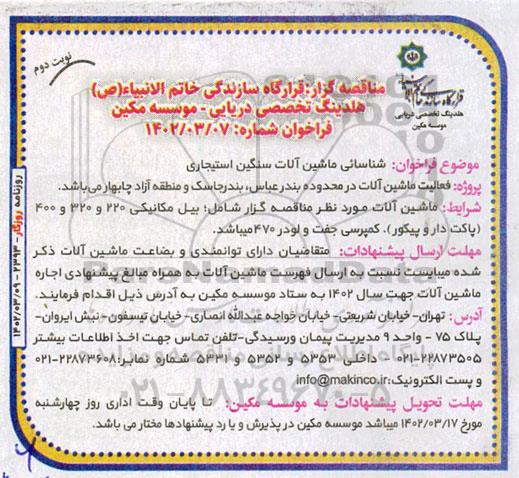 نوبت دوم
هلدینگ تخصصی دریایی
موسسه مکین
مناقصه گزار: قرارگاه سازندگی خاتم الانبیاء(ص)
هلدینگ تخصصی دریایی - موسسه مکین
فراخوان شماره: ۱۴۰۲/۰۳/۰۷
موضوع فراخوان: شناسائی ماشین آلات سنگین استیجاری
پروژه: فعالیت ماشین آلات در محدوده بندرعباس، بندرجاسک و منطقه آزاد چابهار می‌باشد.
شرایط: ماشین آلات مورد نظر مناقصه گزار شامل؛ بیل مکانیکی ۲۲۰ و ۳۲۰ و ۴۰۰
(پاکت دار و پیکور). کمپرسی جفت و لودر ۴۷۰میباشد.
مهلت ارسال پیشنهادات: متقاضیان دارای توانمندی و بضاعت ماشین آلات ذکر
شده میبایست نسبت به ارسال فهرست ماشین آلات به همراه مبالغ پیشنهادی اجاره
ماشین آلات جهت سال ۱۴۰۲ به ستاد موسسه مکین به آدرس ذیل اقدام فرمایند.
آدرس: تهران- خیابان شریعتی- خیابان خواجه عبدالله انصاری- خیابان تیسفون- نبش ایروان-
پلاک ۷۵ - واحد ۹ مدیریت پیمان ورسیدگی-تلفن تماس جهت اخذ اطلاعات بیشتر
۰۲۱-۲۲۸۷۳۵۰۵ داخلی ۵۳۵۳ و ۵۳۵۲ و ۵۳۳۱ شماره نمابر:۰۲۱-۲۲۸۷۳۶۰۸
و پست الکترونیک: info@makinco.ir
مهلت تحویل پیشنهادات به موسسه مکین: تا پایان وقت اداری روز چهارشنبه
مورخ ۱۴۰۲/۰۳/۱۷ میباشد موسسه مکین در پذیرش و یا رد پیشنهادها مختار می باشد.
روزنامه روزگار - ۲۳۹۳ - ۱۴۰۲/۰۳/۰۹